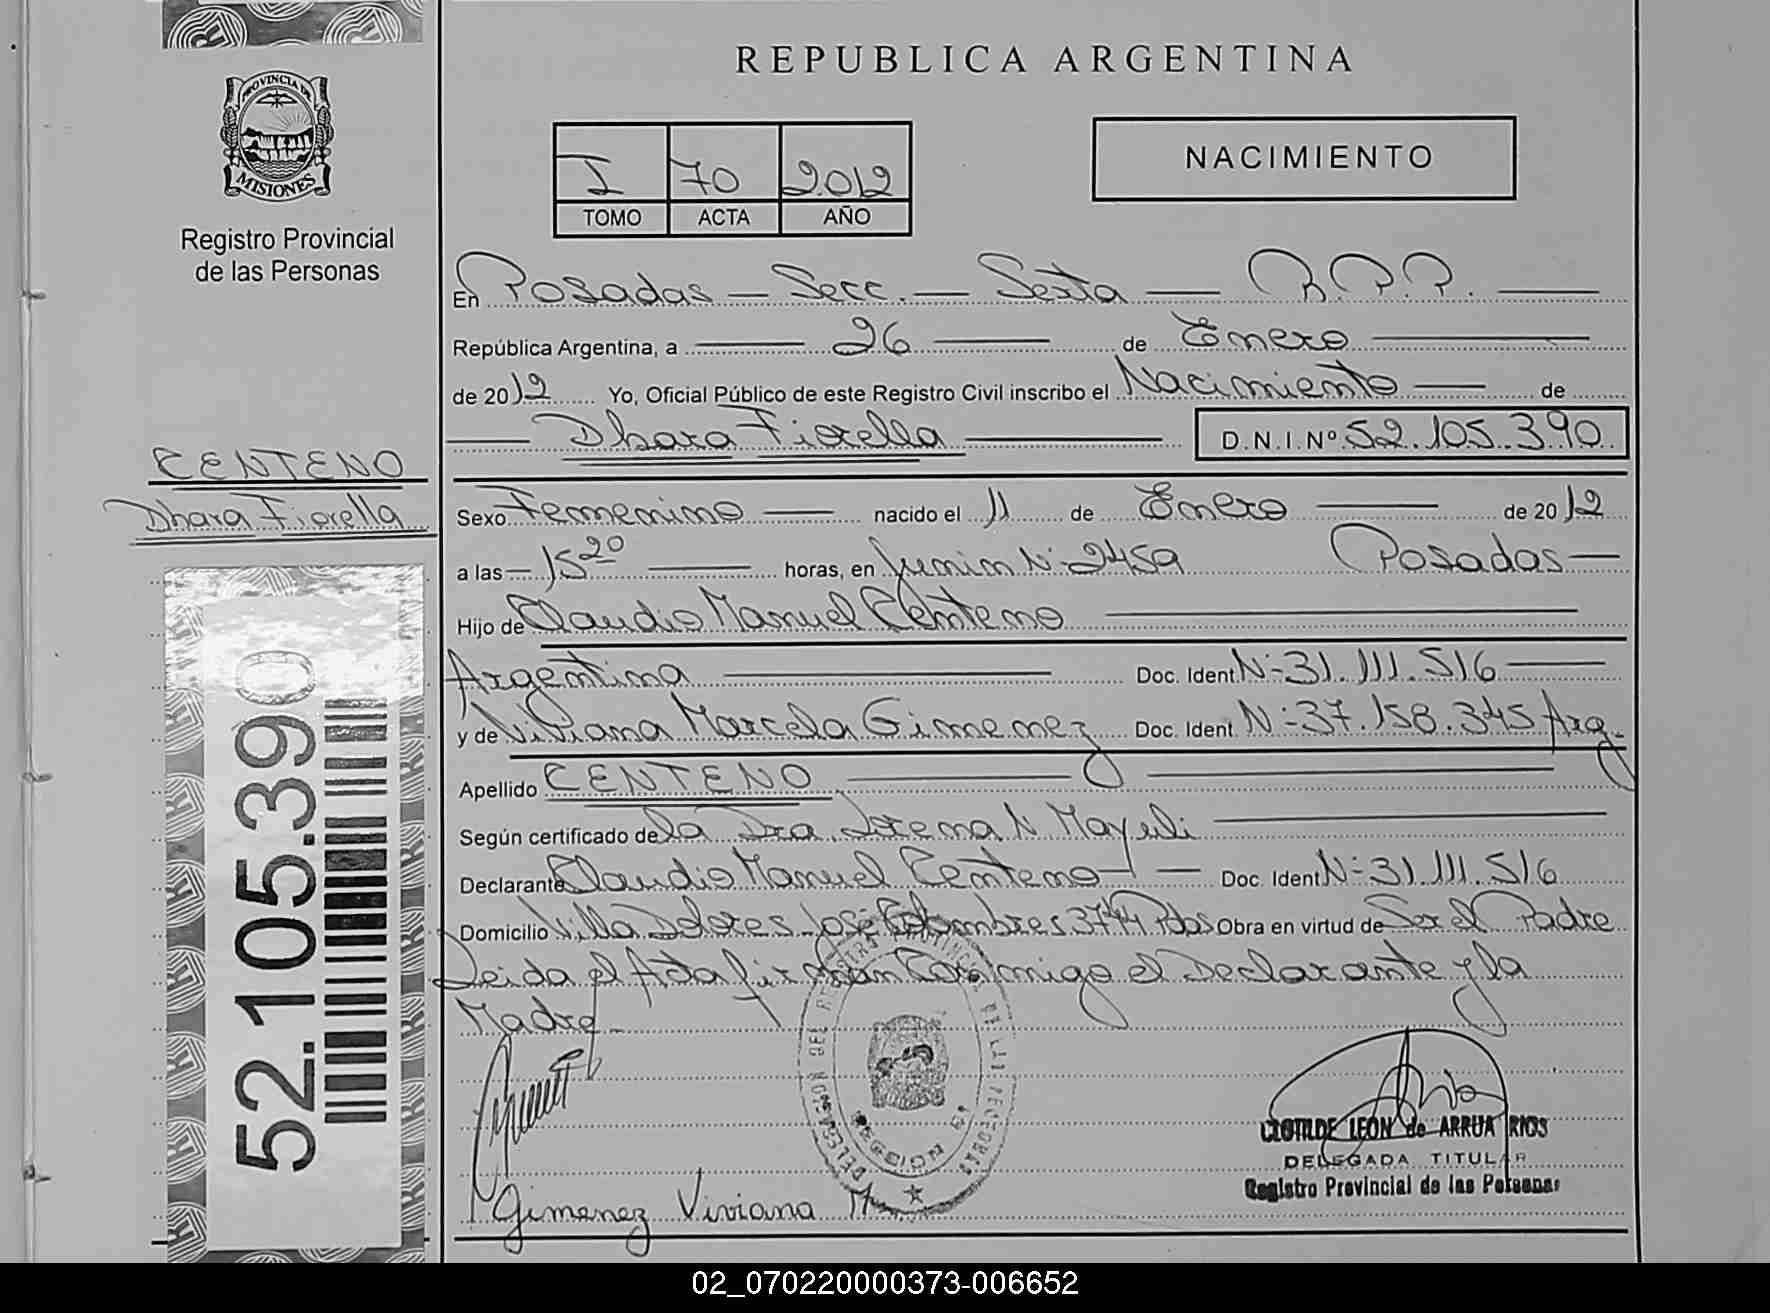 REPUBLICA ARGENTINA
PROVINCIA DE
MISIONES
Registro Provincial
de las Personas
I 70 2012
TOMO ACTA AÑO
NACIMIENTO
En Posadas — Secc. — Sexta — R.P.P. —
República Argentina, a — 26 — de Enero —
de 2012 Yo, Oficial Público de este Registro Civil inscribo el Nacimiento — de
— Dhara Fiorella — D.N.I.Nº 52.105.390
CENTENO
Dhara Fiorella
Sexo Femenino — nacido el 11 de Enero — de 2012
a las — 15 20 — horas, en Junin Nº 2459 Posadas —
Hijo de Claudio Manuel Centeno —
Argentina — Doc. Ident. Nº 31.111.516 —
y de Viviana Marcela Gimenez Doc. Ident. Nº 37.158.345 Arg.
Apellido CENTENO —
Según certificado de la Dra. Lorena N. —
Declarante Claudio Manuel Centeno — Doc. Ident. Nº 31.111.516
Domicilio Villa Dolores José Colombres 3744 Pdas Obra en virtud de Ser el Padre
Leida el Acta firman Conmigo el Declarante y la
Madre.-
Gimenez Viviana M
CLOTILDE LEON de ARRUA RIOS
DELEGADA TITULAR
Registro Provincial de las Personas
52.105.390
02_070220000373-006652